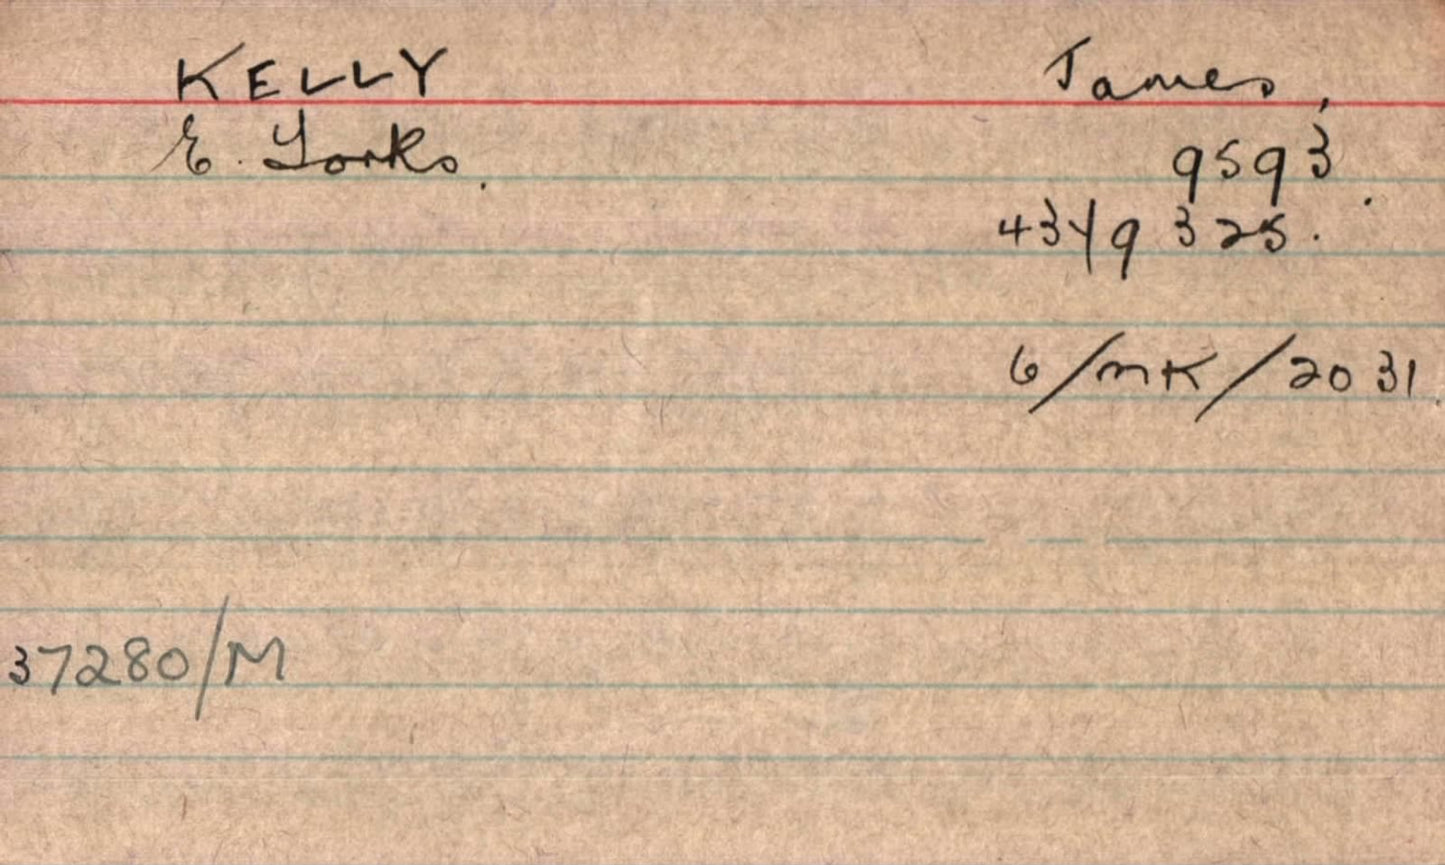 KELLY James,
E. Yorks. 9593.
4349325.
6/MK/2031.
37280/M